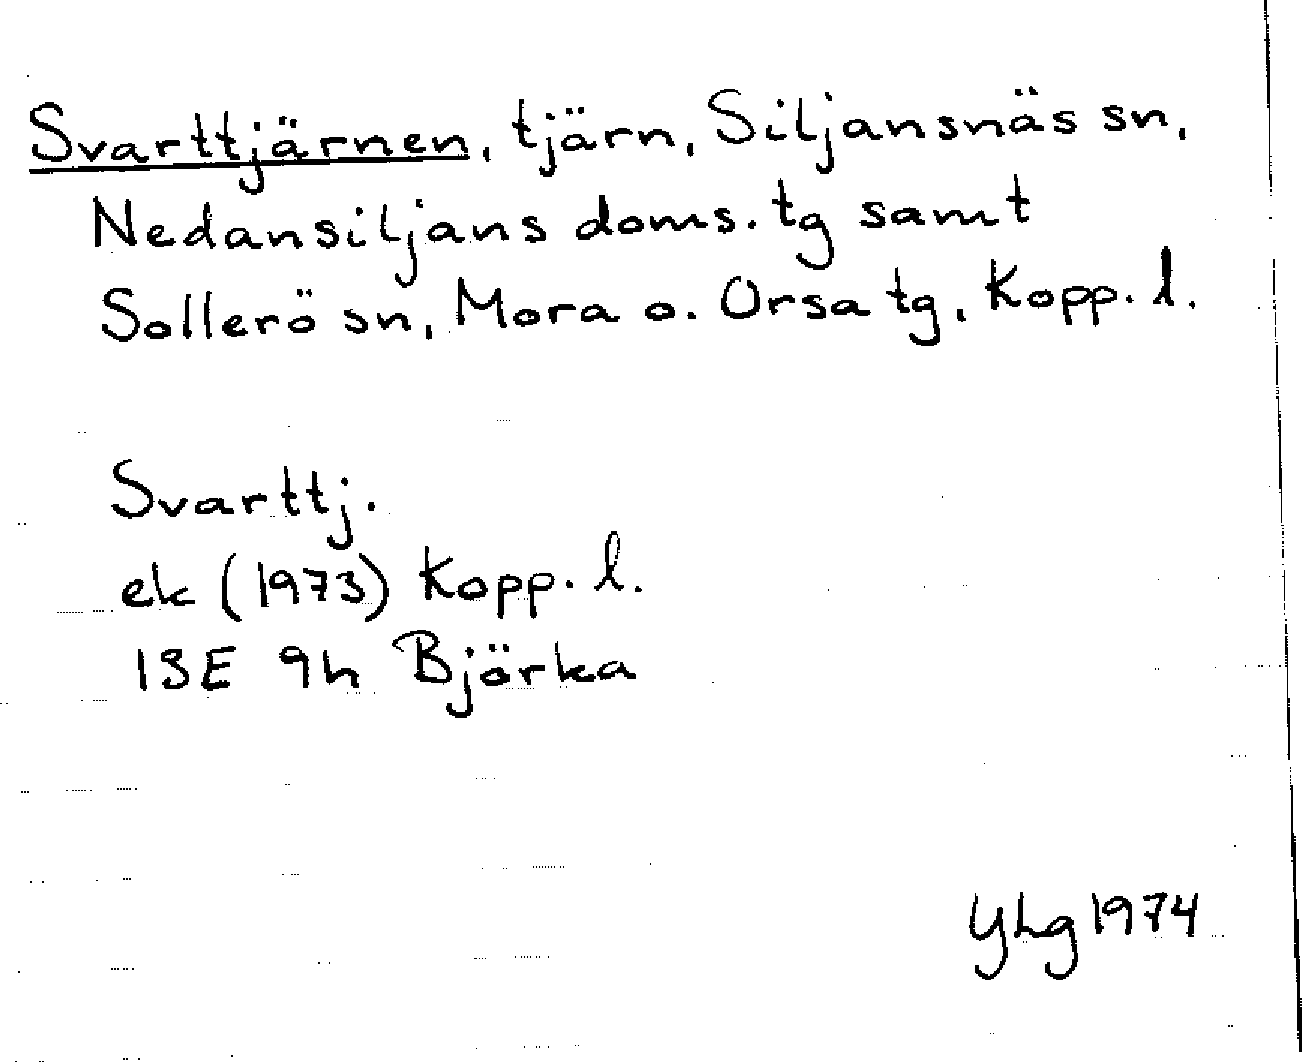 Svarttjärnen, tjärn, Siljansnäs sn,
Nedansiljans doms. tg samt
Sollerö sn, Mora o. Orsa tg, Kopp. l.
Svarttj.
ek (1973) Kopp. l.
13E 9h Björka
YLg 1974